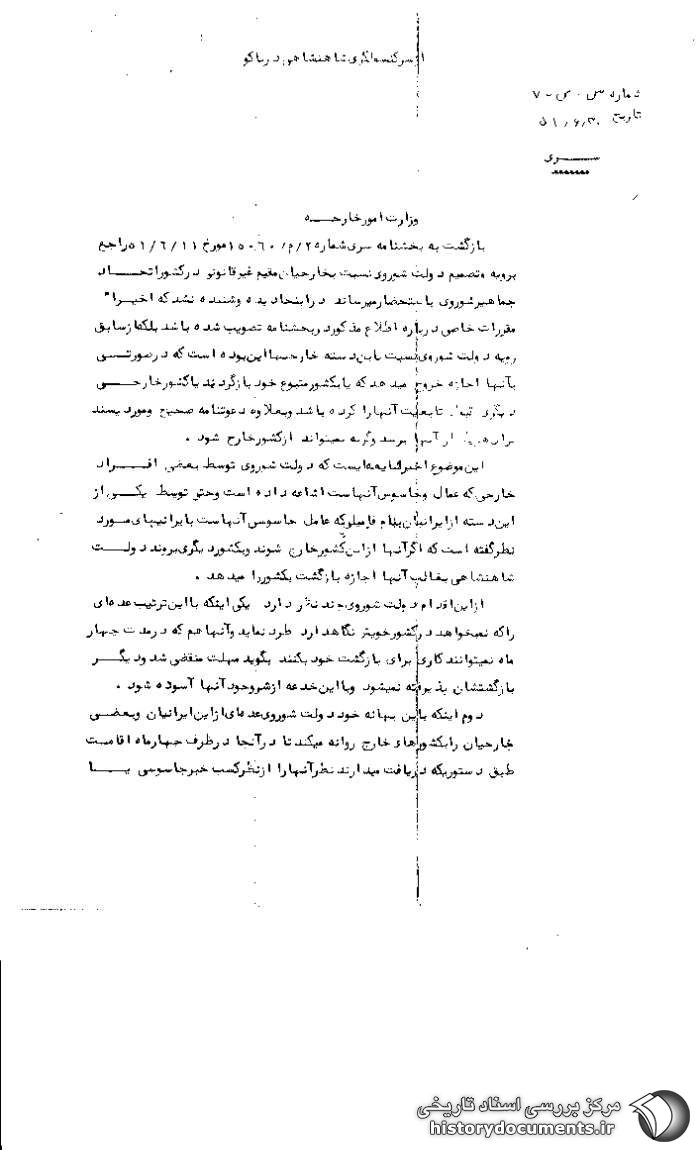 از سرکنسولگری شاهنشاهی در باکو
شماره س . س - ۷
تاریخ ۵۱/۶/۳۰
ســـری
وزارت امور خارجـــه
بازگشت به بخشنامه سری شماره ۱۵۰۶۰/م/۲ مورخ ۵۱/۶/۱۱ راجع
برویه وتصمیم دولت شوروی نسبت بخارجیان مقیم غیرقانونی درکشوراتحـــاد
جماهیرشوروی باستحضارمیرساند دراینجادیده وشنیده نشدکه اخیرا"
مقررات خاصی درباره اطلاع مذکوردربخشنامه تصویب شده باشد بلکه ازسابق
رویه دولت شوروی نسبت باین دسته خارجیها این بوده است که درصورتـــی
بآنها اجازه خروج میدهد که یابکشورمتبوع خود بازگردند یاکشورخارجـــی
دیگری قبول تابعیت آنهارا کرده باشد وبعلاوه دعوتنامه صحیح وموردپسند
برای هریک ازآنها برسد وگرنه نمیتواند ازکشورخارج شود .
این موضوع اخیرا شایعه ایست که دولت شوروی توسط بعضی افـــراد
خارجی که عمال وجاسوس آنهاست اشاعه داده است وحتی توسط یکـــی از
این دسته ازایرانیان بنام که عامل جاسوسی آنهاست باایرانیهای مـــورد
نظرگفته است که اگرآنها ازاین کشورخارج شوند وبکشوردیگری بروند دولـــت
شاهنشاهی بغالب آنها اجازه بازگشت بکشوررا میدهد .
ازاین اقدام دولت شوروی چند نظر دارد یکی اینکه بااین ترتیب عده ای
راکه نمیخواهد درکشورخویش نگاهدارد طرد نماید وآنها هم که درمدت چهار
ماه نمیتوانند کاری برای بازگشت خود بکنند بگوید مهلت منقضی شد ودیگـــر
بازگشتشان پذیرفته نمیشود وبااین خدعه ازشروجودآنها آسوده شود .
دوم اینکه باین بهانه خود دولت شوروی عده ای ازاین ایرانیان وبعضـــی
خارجیان رابکشورهای خارج روانه میکند تا درآنجا درظرف چهارماه اقامـــت
طبق دستوریکه دریافت میدارند نظرآنهارا ازنظرکسب خبرجاسوسی یـــا
مرکز بررسی اسناد تاریخی
historydocuments.ir